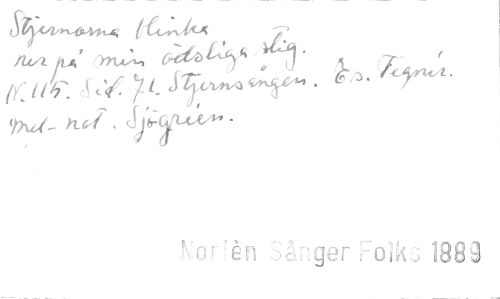 Stjernorna blinka
ner på min ödsliga stig.
N. 115. Sid. 71. Stjernsången. Es. Tegnér.
mel-not. Sjögrén.
Norlèn Sånger Folks 1889